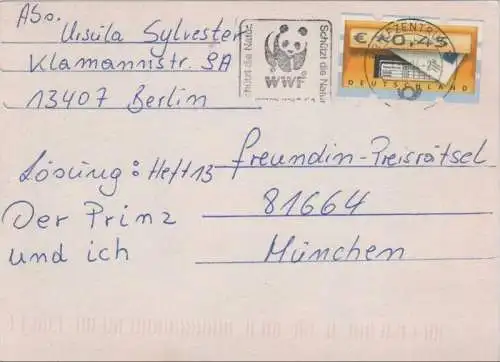 ASo.
Ursula Sylvester
Klamannstr. 9A
13407 Berlin
Schützt die Natur
WWF
Schützt die Natur
€ *0,45
DEUTSCHLAND
Lösung: Heft 13
Der Prinz
und ich
freundin-Preisrätsel
81664
München